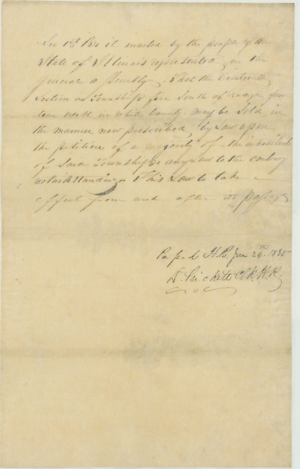 Sec 1st Be it enacted by the people of the
State of Illinois represented in the
general assembly That the
Section in Township five South of range
west in county may be sold in
the manner now prescribed by Law upon
the petition of a majority of the inhabitants
of Said Township any law to the contrary
notwithstanding This Law to take
effect from and after its passage
Passed H.R. Jan 24 1835
D. Prickett Clk H.R.